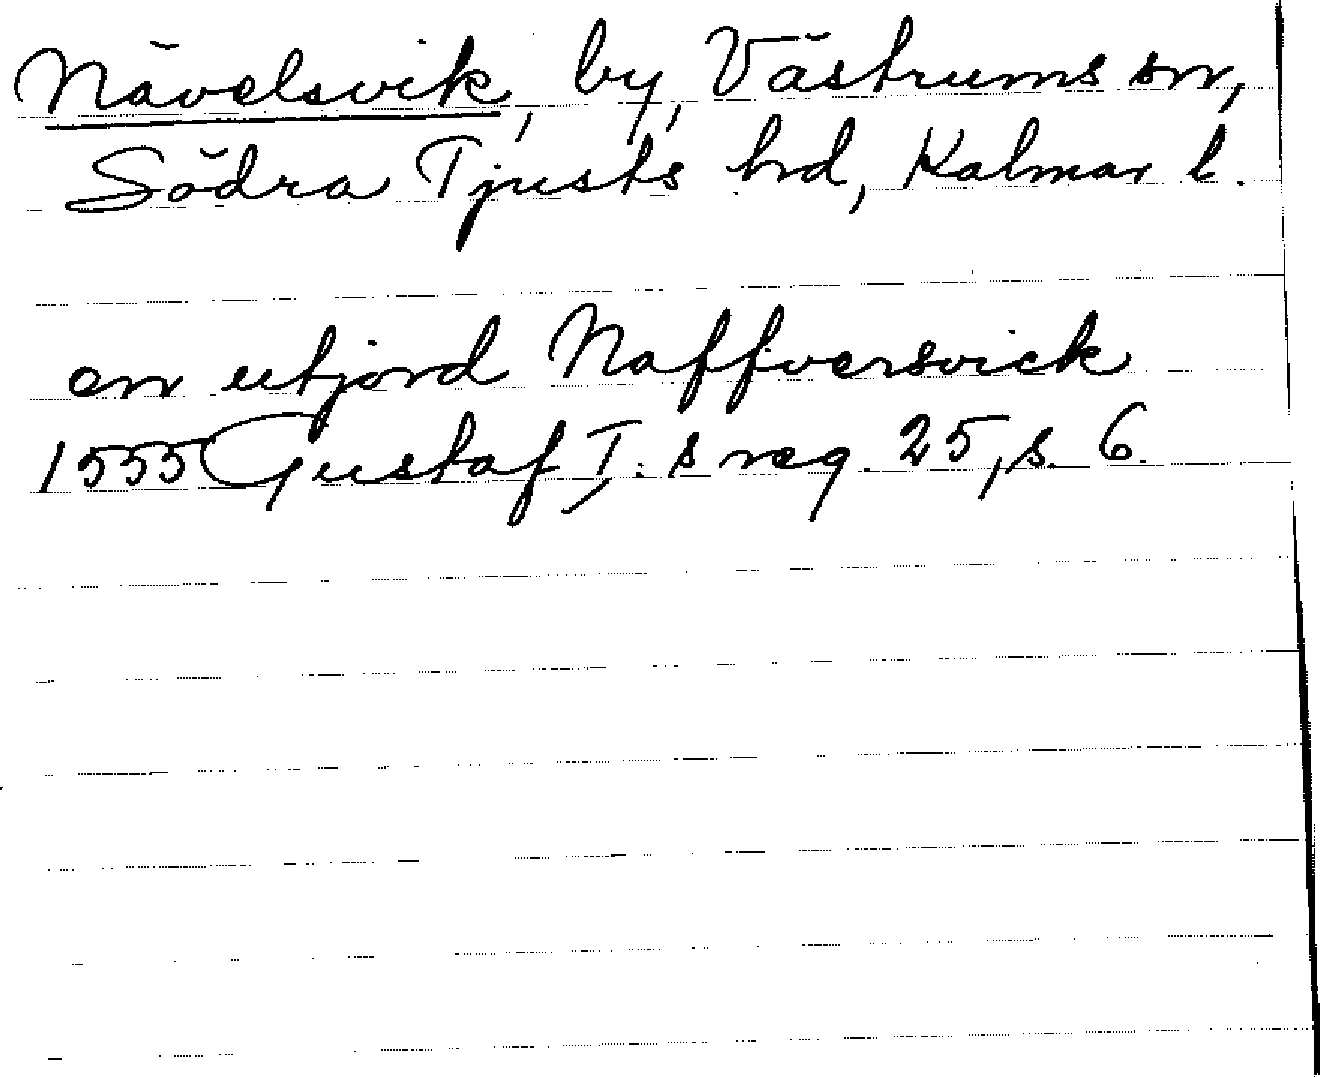 Nävelsvik, by, Västrums sn,
Södra Tjusts hd, Kalmar l.
en utjord Naffversvick
1555 Gustaf I:s reg. 25, s. 6.